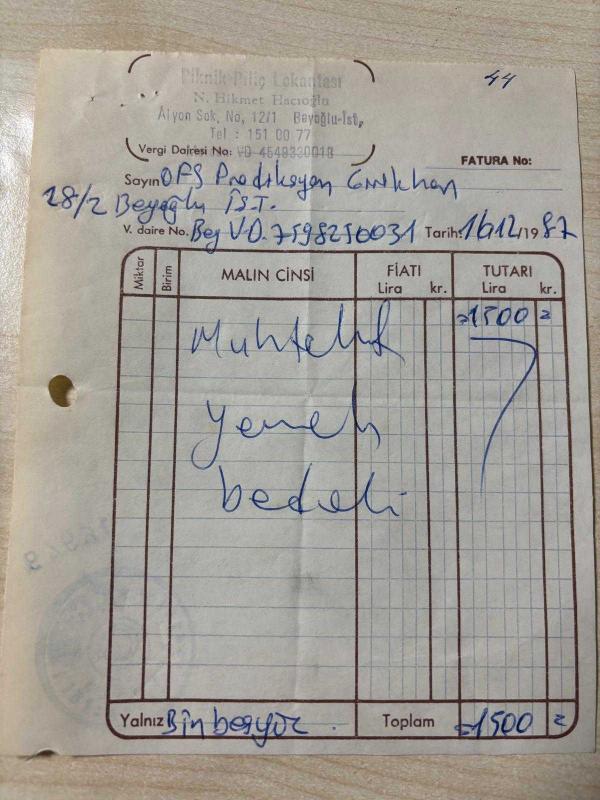 44
Piknik Piliç Lokantası
N. Hikmet Hacıoğlu
Afyon Sok, No, 12/1 Beyoğlu-İst,
Tel : 151 00 77
Vergi Dairesi No: VD 4548330018
FATURA No:
Sayın OFS Prodiksyon
28/2 Beyoğlu İST.
V. daire No. Bey V.D. 7598250031 Tarih: 16/12/1987
Miktar Birim MALIN CİNSİ FİATI Lira kr. TUTARI Lira kr.
Muhtelif =1500=
yemek
bedeli
Yalnız Binbeşyüz. Toplam =1500=